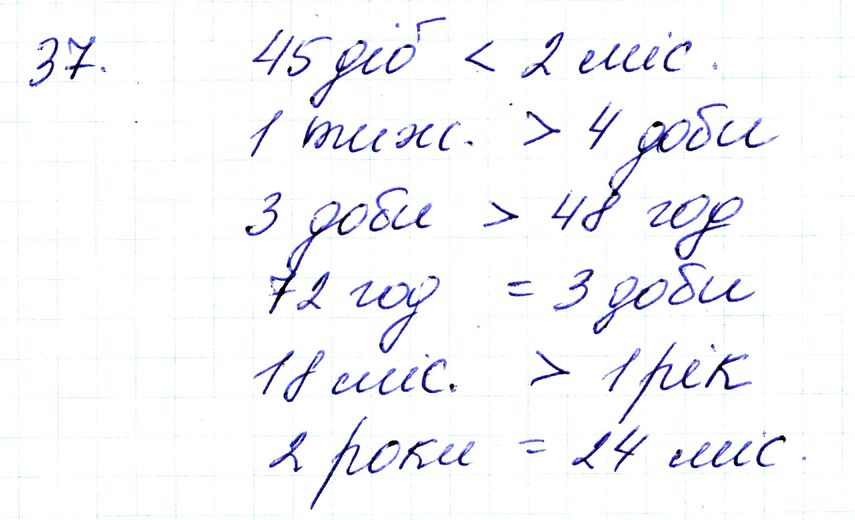 37. 45 діб < 2 міс.
1 тиж. > 4 доби
3 доби > 48 год
72 год = 3 доби
18 міс. > 1 рік
2 роки = 24 міс.